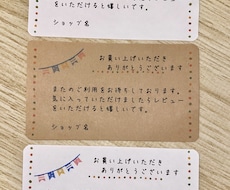 気に入っていただけましたらレビュー
をいただけると嬉しいです。
ショップ名
お買い上げいただき
ありがとうございます
またのご利用をお待ちしております。
気に入っていただけましたらレビュー
をいただけると嬉しいです。
ショップ名
お買い上げいただき
ありがとうございます